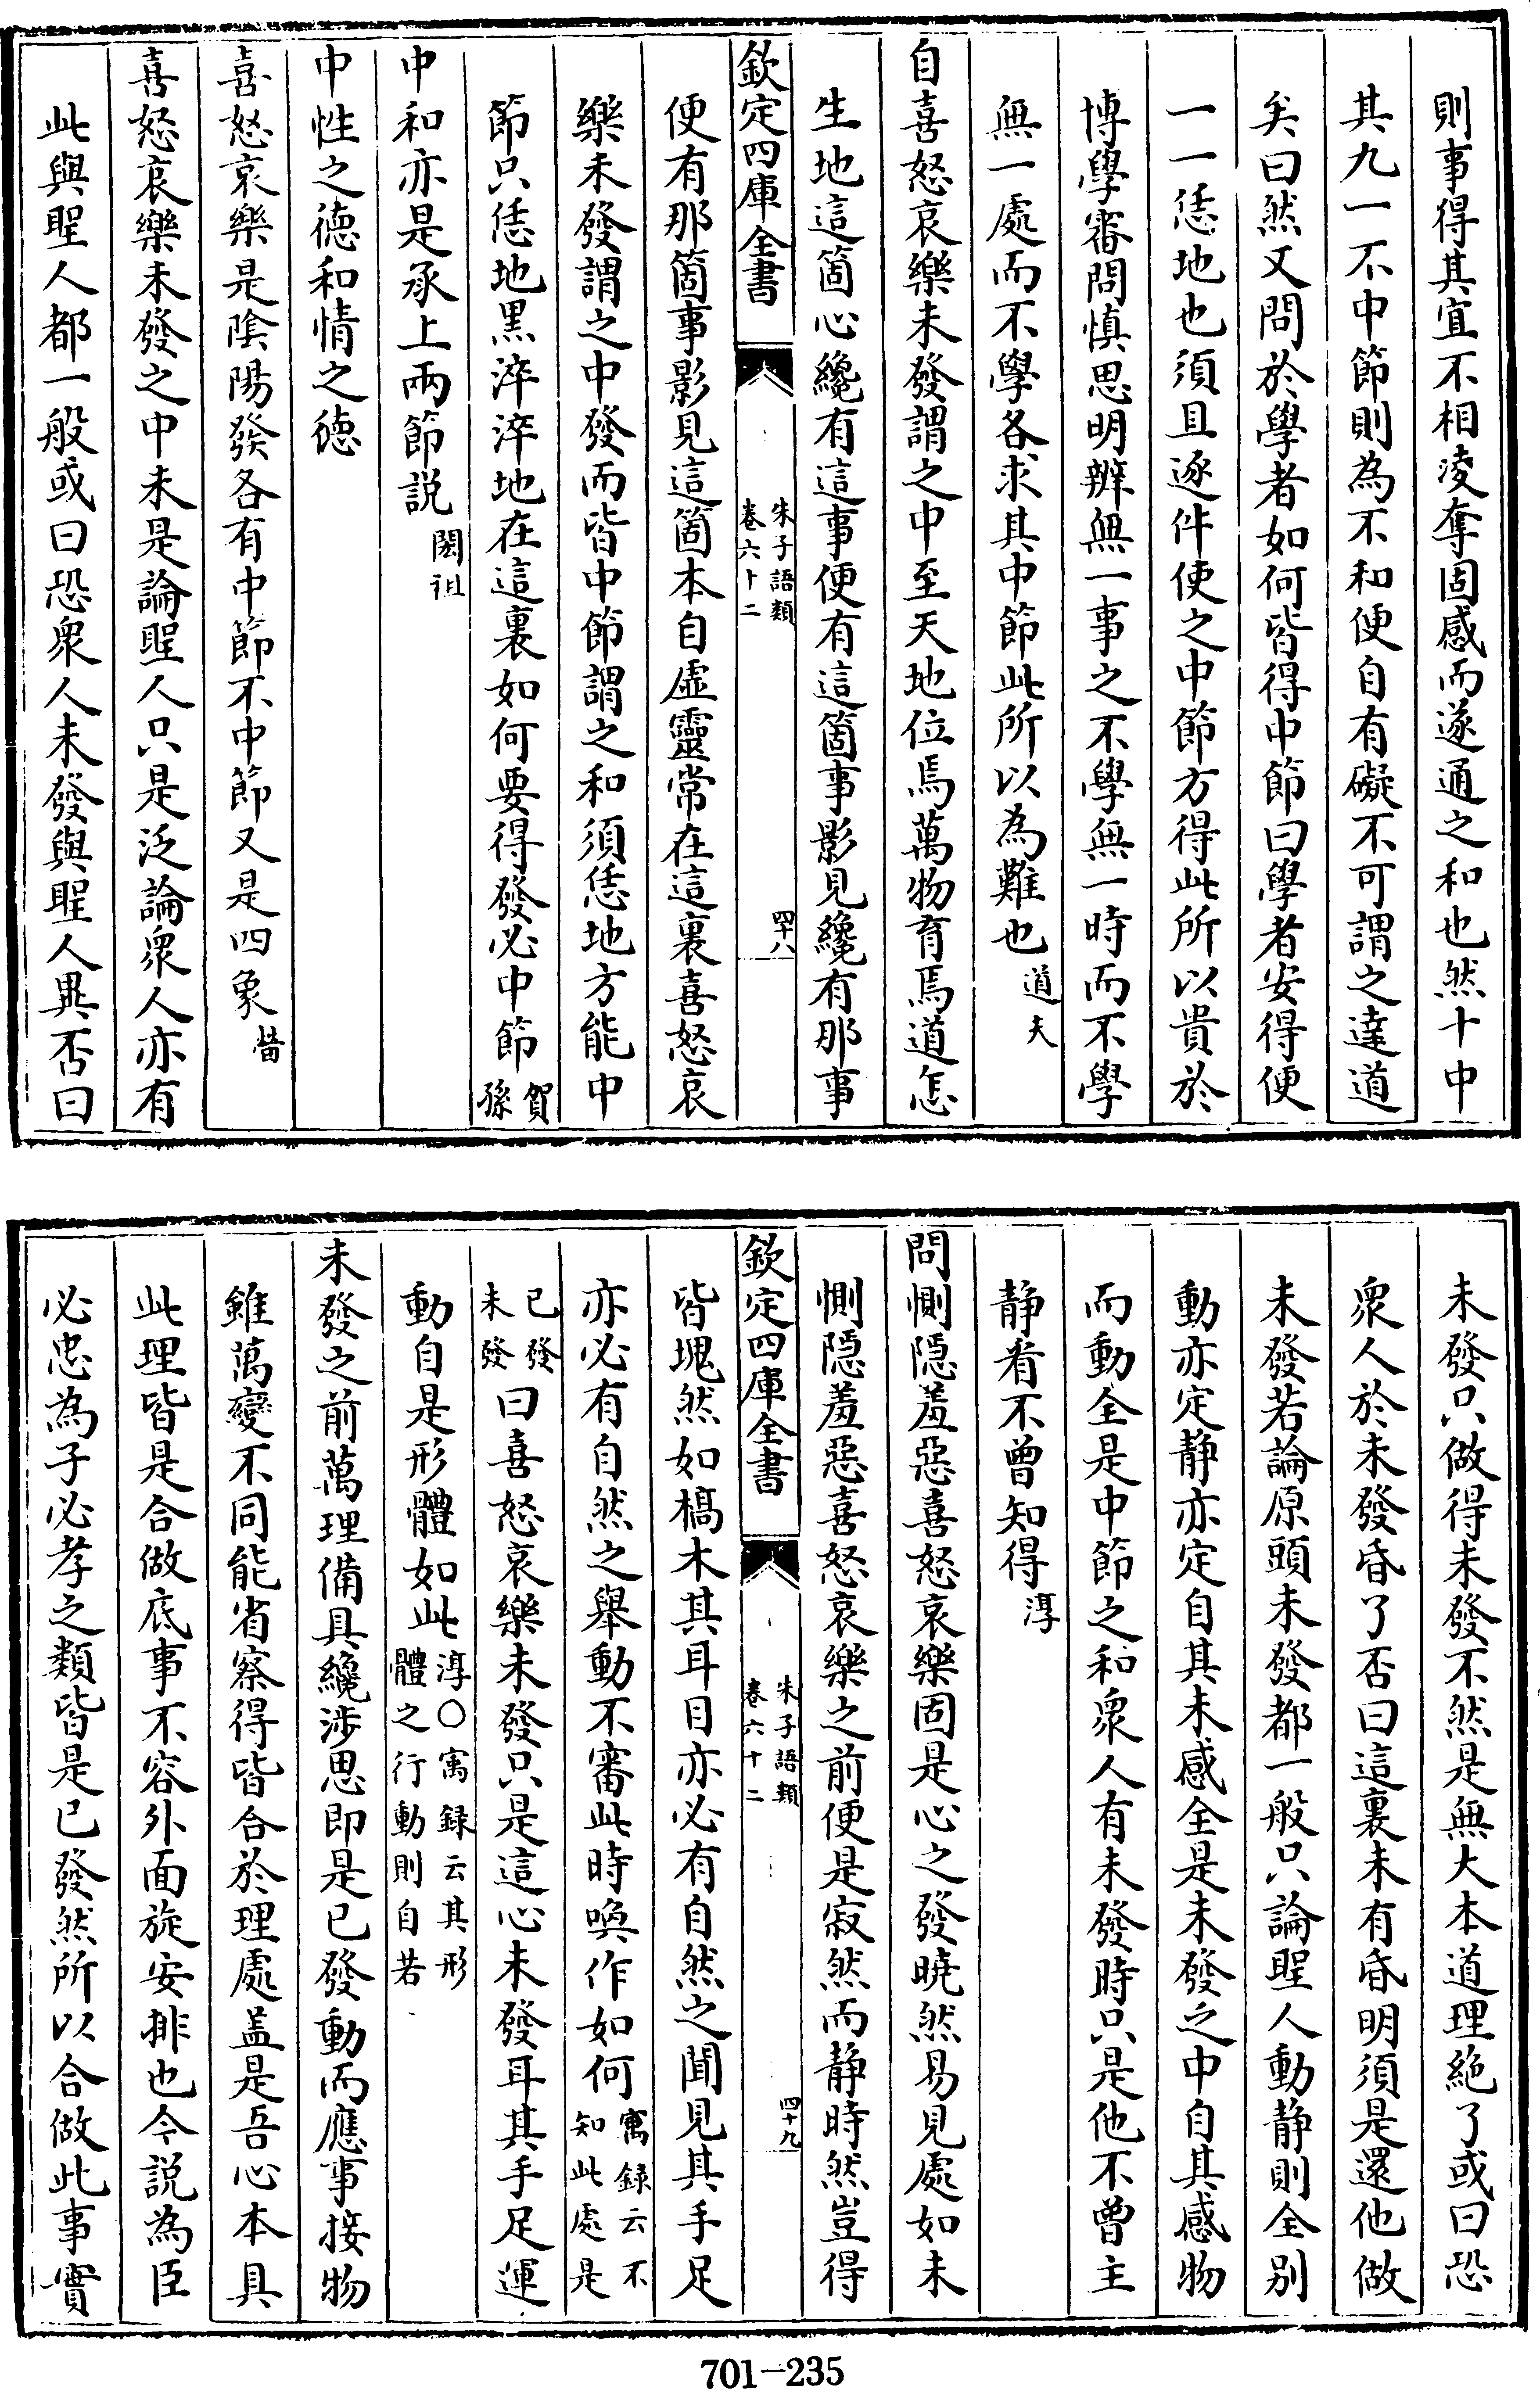 則事得其宜不相凌奪固感而遂通之和也然十中
其九一不中節則為不和便自有礙不可謂之達道
矣曰然又問於學者如何皆得中節曰學者安得便
一一恁地也須且逐件使之中節方得此所以貴於
博學審問慎思明辨無一事之不學無一時而不學
無一處而不學各求其中節此所以為難也道夫
自喜怒哀樂未發謂之中至天地位焉萬物育焉道怎
生地這箇心纔有這事便有這箇事影見纔有那事
欽定四庫全書
朱子語類
卷六十二
四十八
便有那箇事影見這箇本自虛靈常在這裏喜怒哀
樂未發謂之中發而皆中節謂之和須恁地方能中
節只恁地黑淬淬地在這裏如何要得發必中節賀孫
中和亦是承上兩節説閎祖
中性之德和情之德
喜怒哀樂是陰陽發各有中節不中節又是四象㽦
喜怒哀樂未發之中未是論聖人只是泛論衆人亦有
此與聖人都一般或曰恐衆人未發與聖人異否曰
未發只做得未發不然是無大本道理絶了或曰恐
衆人於未發昏了否曰這裏未有昏明須是還他做
未發若論原頭未發都一般只論聖人動静則全别
動亦定静亦定自其未感全是未發之中自其感物
而動全是中節之和衆人有未發時只是他不曾主
静看不曾知得淳
問惻隠羞惡喜怒哀樂固是心之發曉然易見處如未
惻隠羞惡喜怒哀樂之前便是寂然而静時然豈得
欽定四庫全書
朱子語類
卷六十二
四十九
皆塊然如槁木其耳目亦必有自然之聞見其手足
亦必有自然之舉動不審此時喚作如何寓録云不知此處是
已發未發曰喜怒哀樂未發只是這心未發耳其手足運
動自是形體如此淳○寓録云其形體之行動則自若
未發之前萬理備具纔涉思即是已發動而應事接物
雖萬變不同能省察得皆合於理處盖是吾心本具
此理皆是合做底事不容外面旋安排也今説為臣
必忠為子必孝之類皆是已發然所以合做此事實
701-235